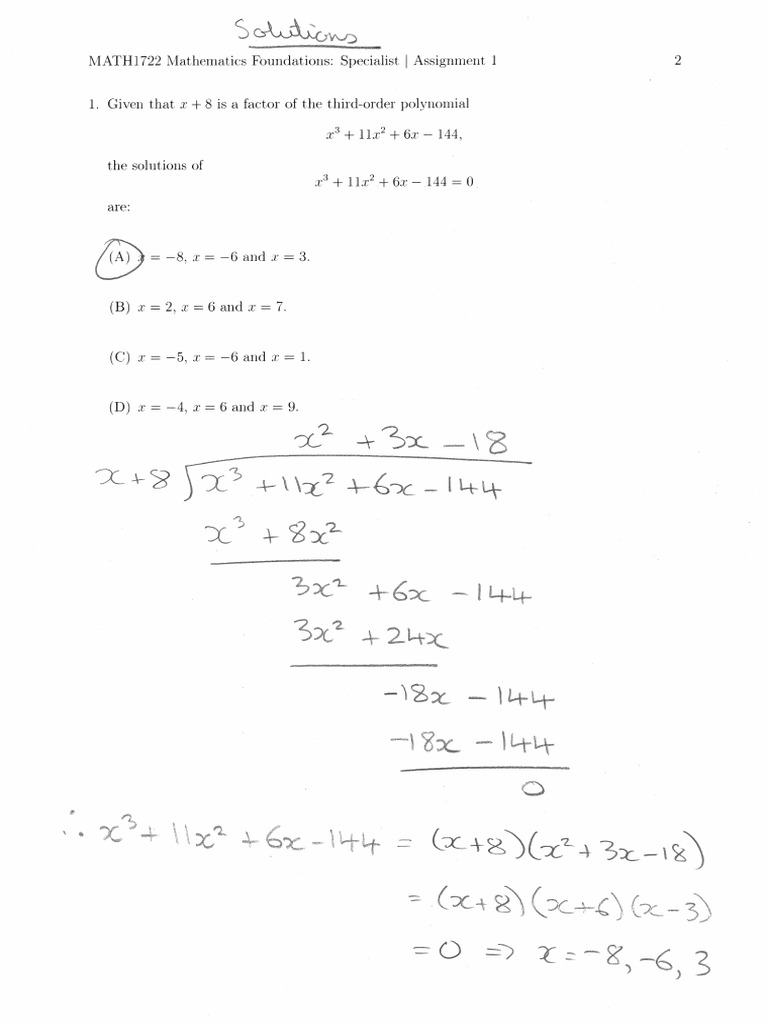 Solutions
MATH1722 Mathematics Foundations: Specialist | Assignment 1 2
1. Given that x + 8 is a factor of the third-order polynomial
x³ + 11x² + 6x − 144,
the solutions of
x³ + 11x² + 6x − 144 = 0
are:
(A) x = −8, x = −6 and x = 3.
(B) x = 2, x = 6 and x = 7.
(C) x = −5, x = −6 and x = 1.
(D) x = −4, x = 6 and x = 9.
x² + 3x − 18
x + 8 ) x³ + 11x² + 6x − 144
x³ + 8x²
3x² + 6x − 144
3x² + 24x
−18x − 144
−18x − 144
0
∴ x³ + 11x² + 6x − 144 = (x+8)(x² + 3x − 18)
= (x+8)(x+6)(x−3)
= 0 ⇒ x = −8, −6, 3